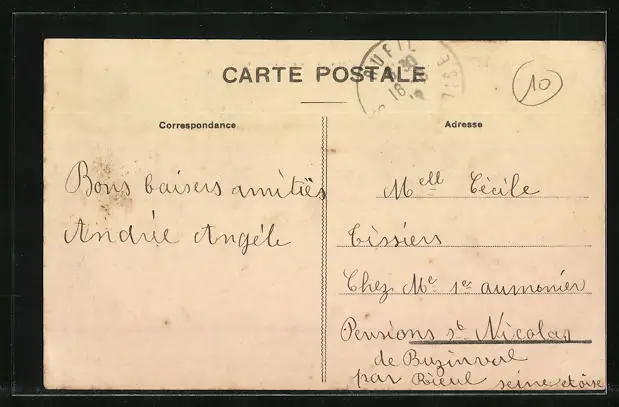 CARTE POSTALE
10
Correspondance
Bons baisers amitiés
Andrée Angèle
Adresse
Melle Cécile
Tissiers
Chez Me 1er aumonier
Pensions st Nicolas
de Buzinval
par Rieul seine et oise